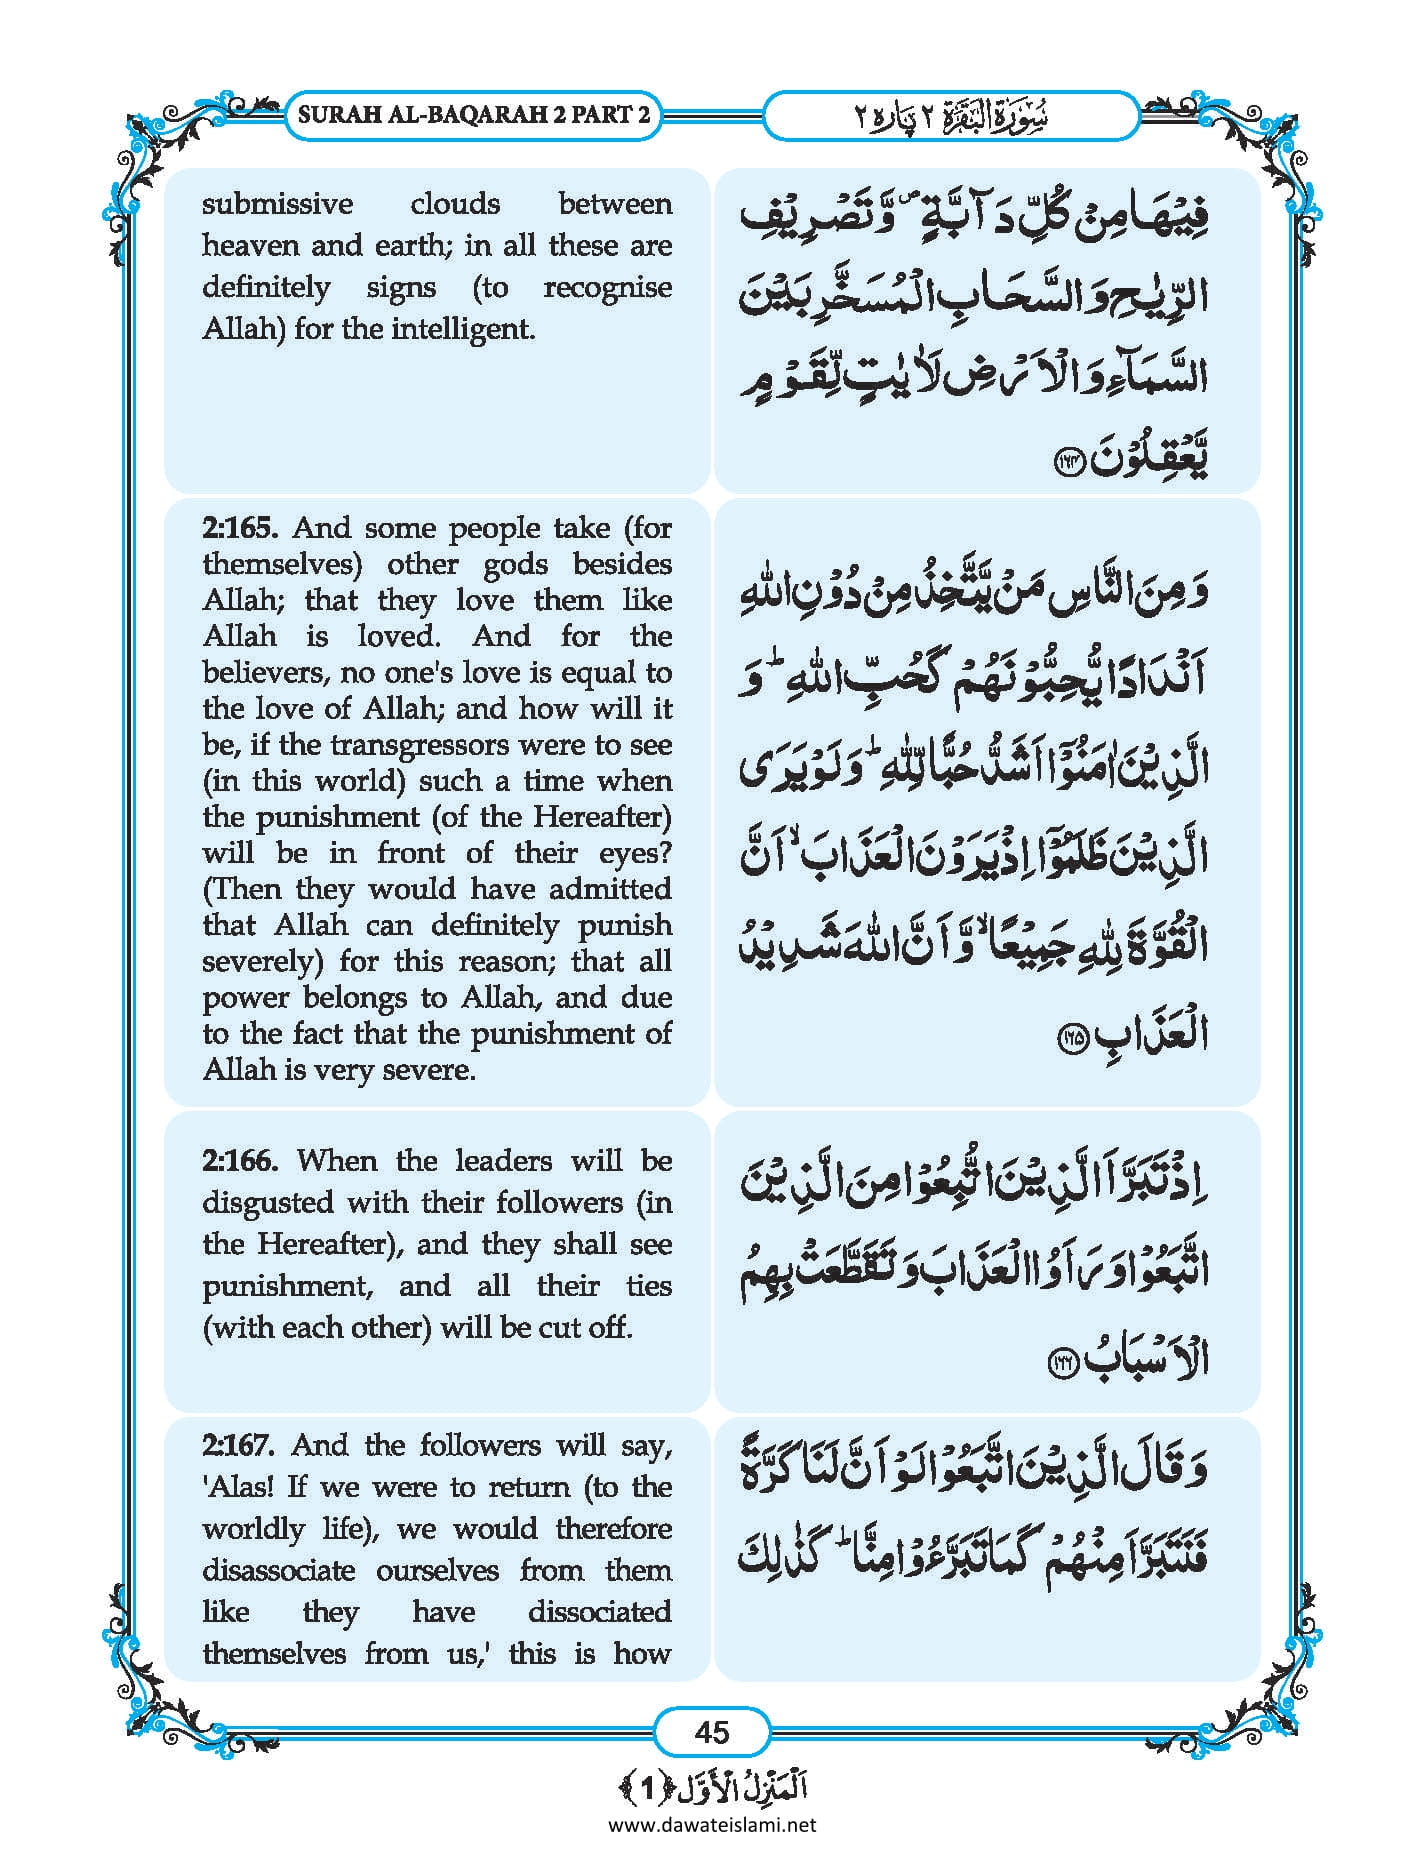 SURAH AL-BAQARAH 2 PART 2
سُوْرَۃُ الْبَقَرَۃ ۲ پارہ ۲
submissive clouds between
heaven and earth; in all these are
definitely signs (to recognise
Allah) for the intelligent.
فِیْهَا مِنْ كُلِّ دَآبَّةٍ ۪ وَّ تَصْرِیْفِ
الرِّیٰحِ وَ السَّحَابِ الْمُسَخَّرِ بَیْنَ
السَّمَآءِ وَ الْاَرْضِ لَاٰیٰتٍ لِّقَوْمٍ
یَّعْقِلُوْنَ ﴿۱۶۴﴾
2:165. And some people take (for
themselves) other gods besides
Allah; that they love them like
Allah is loved. And for the
believers, no one's love is equal to
the love of Allah; and how will it
be, if the transgressors were to see
(in this world) such a time when
the punishment (of the Hereafter)
will be in front of their eyes?
(Then they would have admitted
that Allah can definitely punish
severely) for this reason; that all
power belongs to Allah, and due
to the fact that the punishment of
Allah is very severe.
وَ مِنَ النَّاسِ مَنْ یَّتَّخِذُ مِنْ دُوْنِ اللّٰهِ
اَنْدَادًا یُّحِبُّوْنَهُمْ كَحُبِّ اللّٰهِ ؕ وَ
الَّذِیْنَ اٰمَنُوْۤا اَشَدُّ حُبًّا لِّلّٰهِ ؕ وَ لَوْ یَرَی
الَّذِیْنَ ظَلَمُوْۤا اِذْ یَرَوْنَ الْعَذَابَ ۙ اَنَّ
الْقُوَّةَ لِلّٰهِ جَمِیْعًا ۙ وَّ اَنَّ اللّٰهَ شَدِیْدُ
الْعَذَابِ ﴿۱۶۵﴾
2:166. When the leaders will be
disgusted with their followers (in
the Hereafter), and they shall see
punishment, and all their ties
(with each other) will be cut off.
اِذْ تَبَرَّاَ الَّذِیْنَ اتُّبِعُوْا مِنَ الَّذِیْنَ
اتَّبَعُوْا وَ رَاَوُا الْعَذَابَ وَ تَقَطَّعَتْ بِهِمُ
الْاَسْبَابُ ﴿۱۶۶﴾
2:167. And the followers will say,
'Alas! If we were to return (to the
worldly life), we would therefore
disassociate ourselves from them
like they have dissociated
themselves from us,' this is how
وَ قَالَ الَّذِیْنَ اتَّبَعُوْا لَوْ اَنَّ لَنَا كَرَّةً
فَنَتَبَرَّاَ مِنْهُمْ كَمَا تَبَرَّءُوْا مِنَّا ؕ كَذٰلِكَ
45
اَلْمَنْزِلُ الْاَوَّل ﴿1﴾
www.dawateislami.net